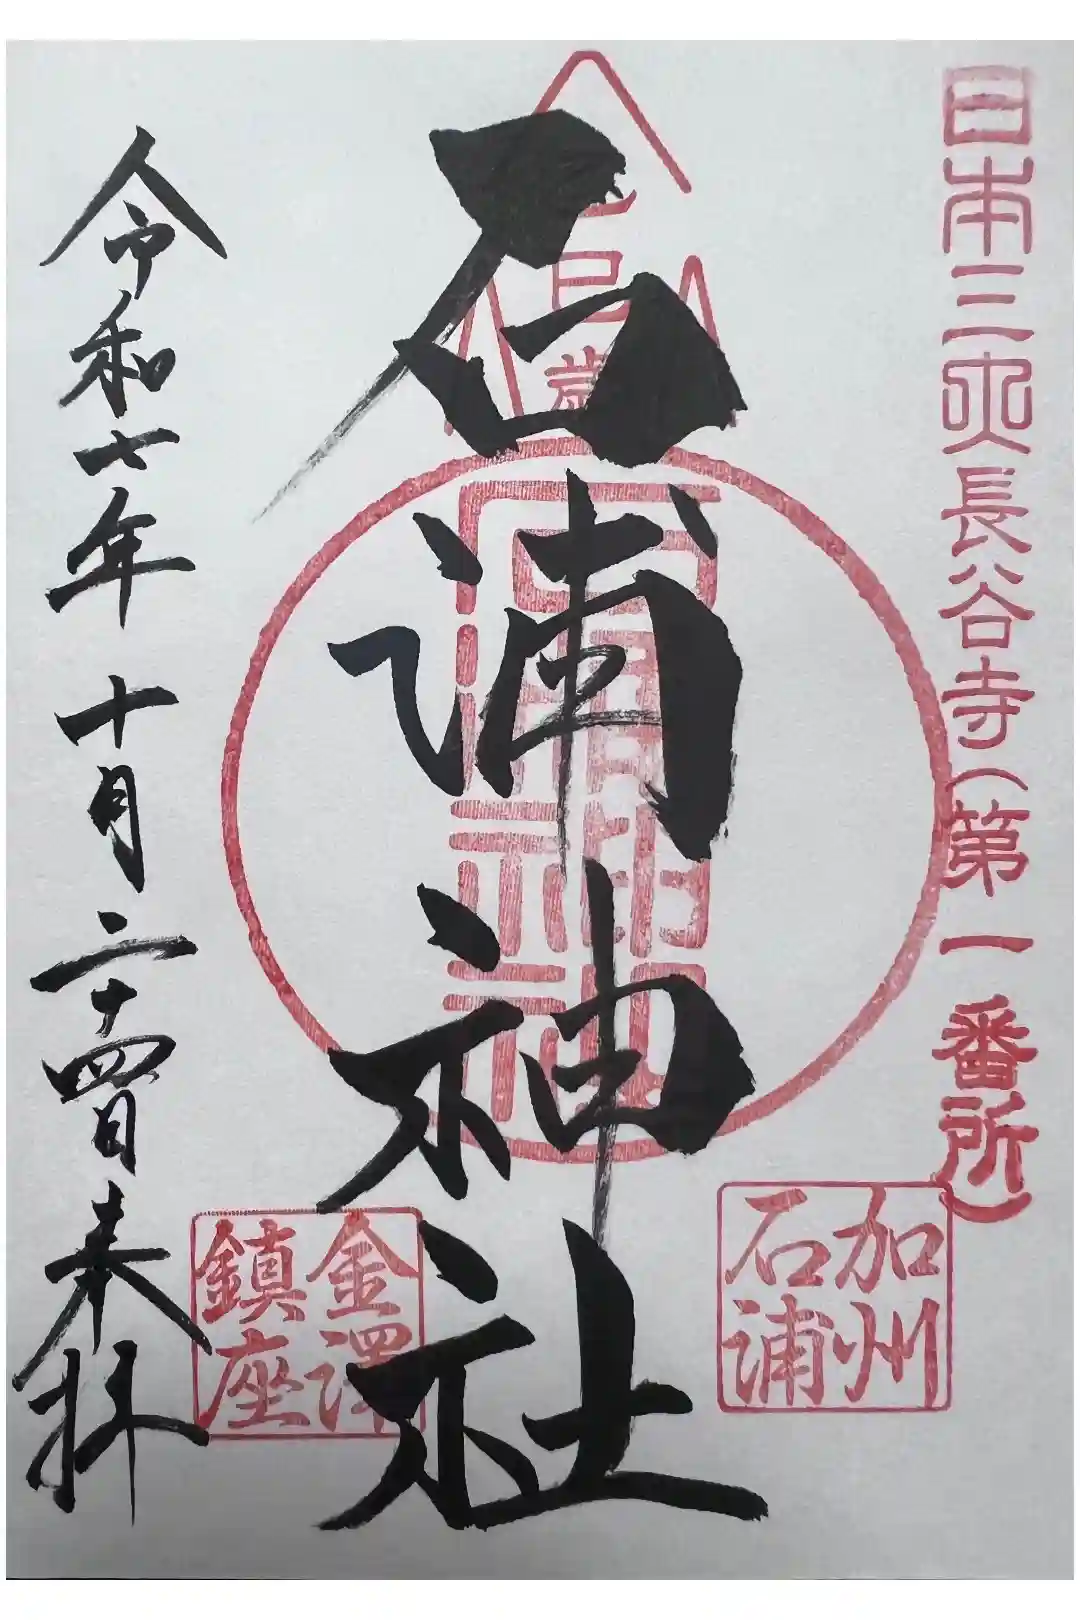 日本三大長谷寺(第一番所)
加州
石浦
乙巳歳
石浦神社
石浦神社
金澤
鎮座
令和七年十月二十四日奉拝